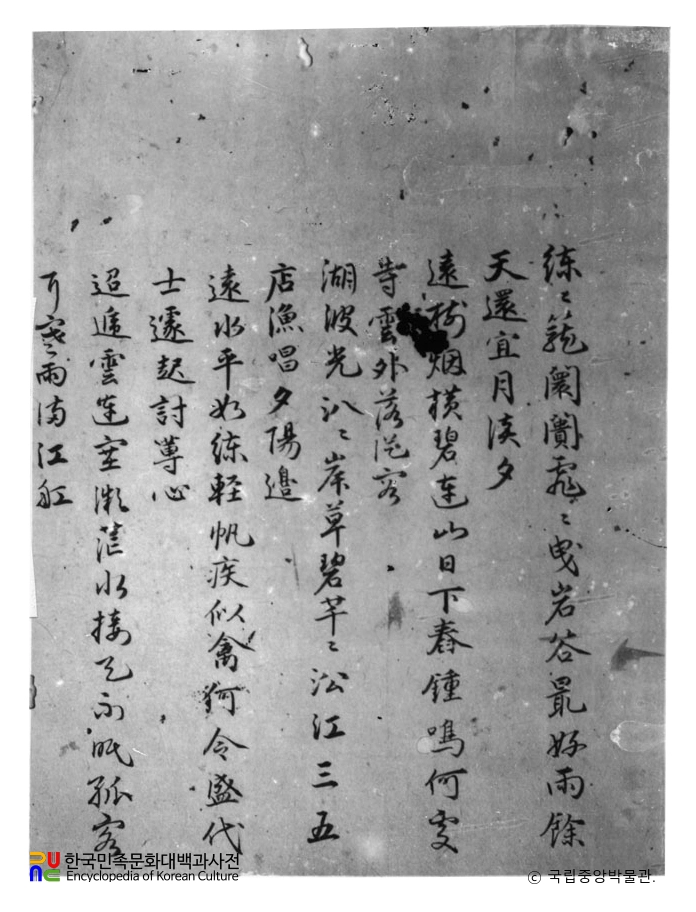 練〻籠闤闠霏〻曳岩谷最好雨餘
天還宜月淡夕
遠樹烟横碧連山日下舂鍾鳴何處
寺雲外落從容
湖波光〻岸草碧芊〻江三五
店漁唱夕陽邊
遠水平如練軽帆疾似禽令盛代
士遽起討蓴心
迢遞雲連塞微茫水接天不眠孤客
耳寒雨滿江舡
한국민족문화대백과사전
Encyclopedia of Korean Culture
© 국립중앙박물관.